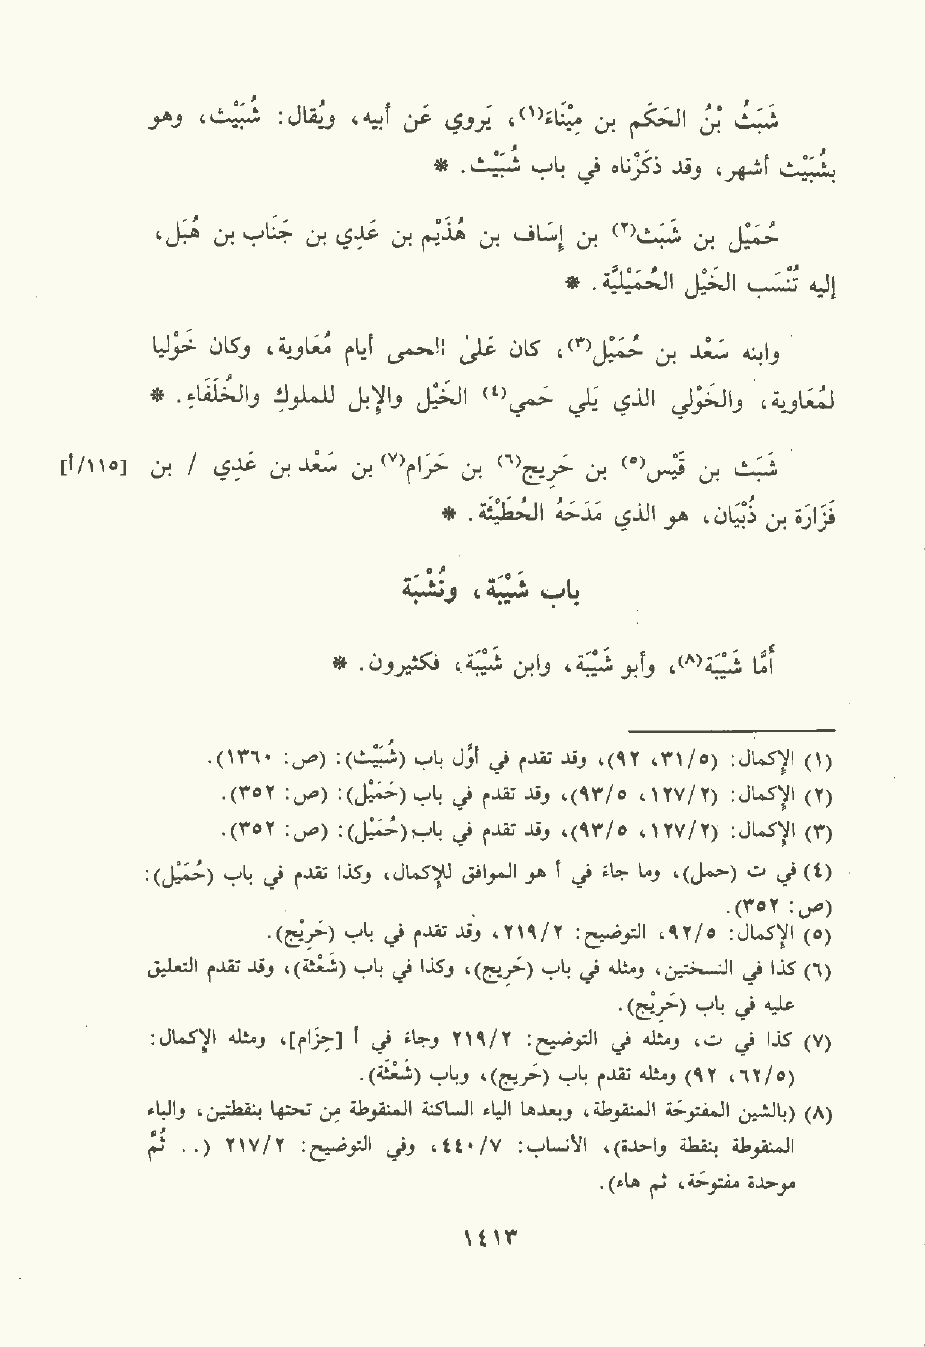 شَبَثُ بْنُ الحَكَم بن مِيْنَاء(١)، يَروي عَن أبيه، ويُقال: شُبَيْث، وهو
بشُبَيْث أشهر، وقد ذكَرْناه في باب شُبَيْث. *
حُمَيْل بن شَبَث(٢) بن إسَاف بن هُذَيْم بن عَدِي بن جَنَاب بن هُبَل،
إليه تُنْسَب الخَيْل الحُمَيْليَّة. *
وابنه سَعْد بن حُمَيْل(٣)، كان عَلى الحمى أيام مُعَاوية، وكان خَوْليا
لمُعَاوية، والخَوْلي الذي يَلي حَمي(٤) الخَيْل والإبل للملوك والخُلَفَاء. *
شَبَث بن قَيْس(٥) بن حَرِيج(٦) بن حَرَام(٧) بن سَعْد بن عَدِي / بن [١١٥/أ]
فَزَارَة بن ذُبْيَان، هو الذي مَدَحَهُ الحُطَيْئَة. *
باب شَيْبَة، ونُشْبَة
أمَّا شَيْبَة(٨)، وأبو شَيْبَة، وابن شَيْبَة، فكثيرون. *
(١) الإكمال: (٥/ ٣١، ٩٢)، وقد تقدم في أوَّل باب (شُبَيْث): (ص: ١٣٦٠).
(٢) الإكمال: (٢/ ١٢٧، ٥/ ٩٣)، وقد تقدم في باب (حُمَيْل): (ص: ٣٥٢).
(٣) الإكمال: (٢/ ١٢٧، ٥/ ٩٣)، وقد تقدم في باب (حُمَيْل): (ص: ٣٥٢).
(٤) في ت (حمل)، وما جاء في أ هو الموافق للإكمال، وكذا تقدم في باب (حُمَيْل):
(ص: ٣٥٢).
(٥) الإكمال: ٥/ ٩٢، التوضيح: ٢/ ٢١٩، وقد تقدم في باب (خُرَيْج).
(٦) كذا في النسختين، ومثله في باب (حَرِيج)، وكذا في باب (شَعْثَة)، وقد تقدم التعليق
عليه في باب (خُرَيْج).
(٧) كذا في ت، ومثله في التوضيح: ٢/ ٢١٩ وجاء في أ [حِزَام]، ومثله الإكمال:
(٥/ ٦٢، ٩٢) ومثله تقدم باب (حَرِيج)، وباب (شَعْثَة).
(٨) (بالشين المفتوحَة المنقوطة، وبعدها الياء الساكنة المنقوطة مِن تحتها بنقطتين، والباء
المنقوطة بنقطة واحدة)، الأنساب: ٧/ ٤٤٠، وفي التوضيح: ٢/ ٢١٧ (.. ثُمَّ
موحدة مفتوحَة، ثم هاء).
١٤١٣